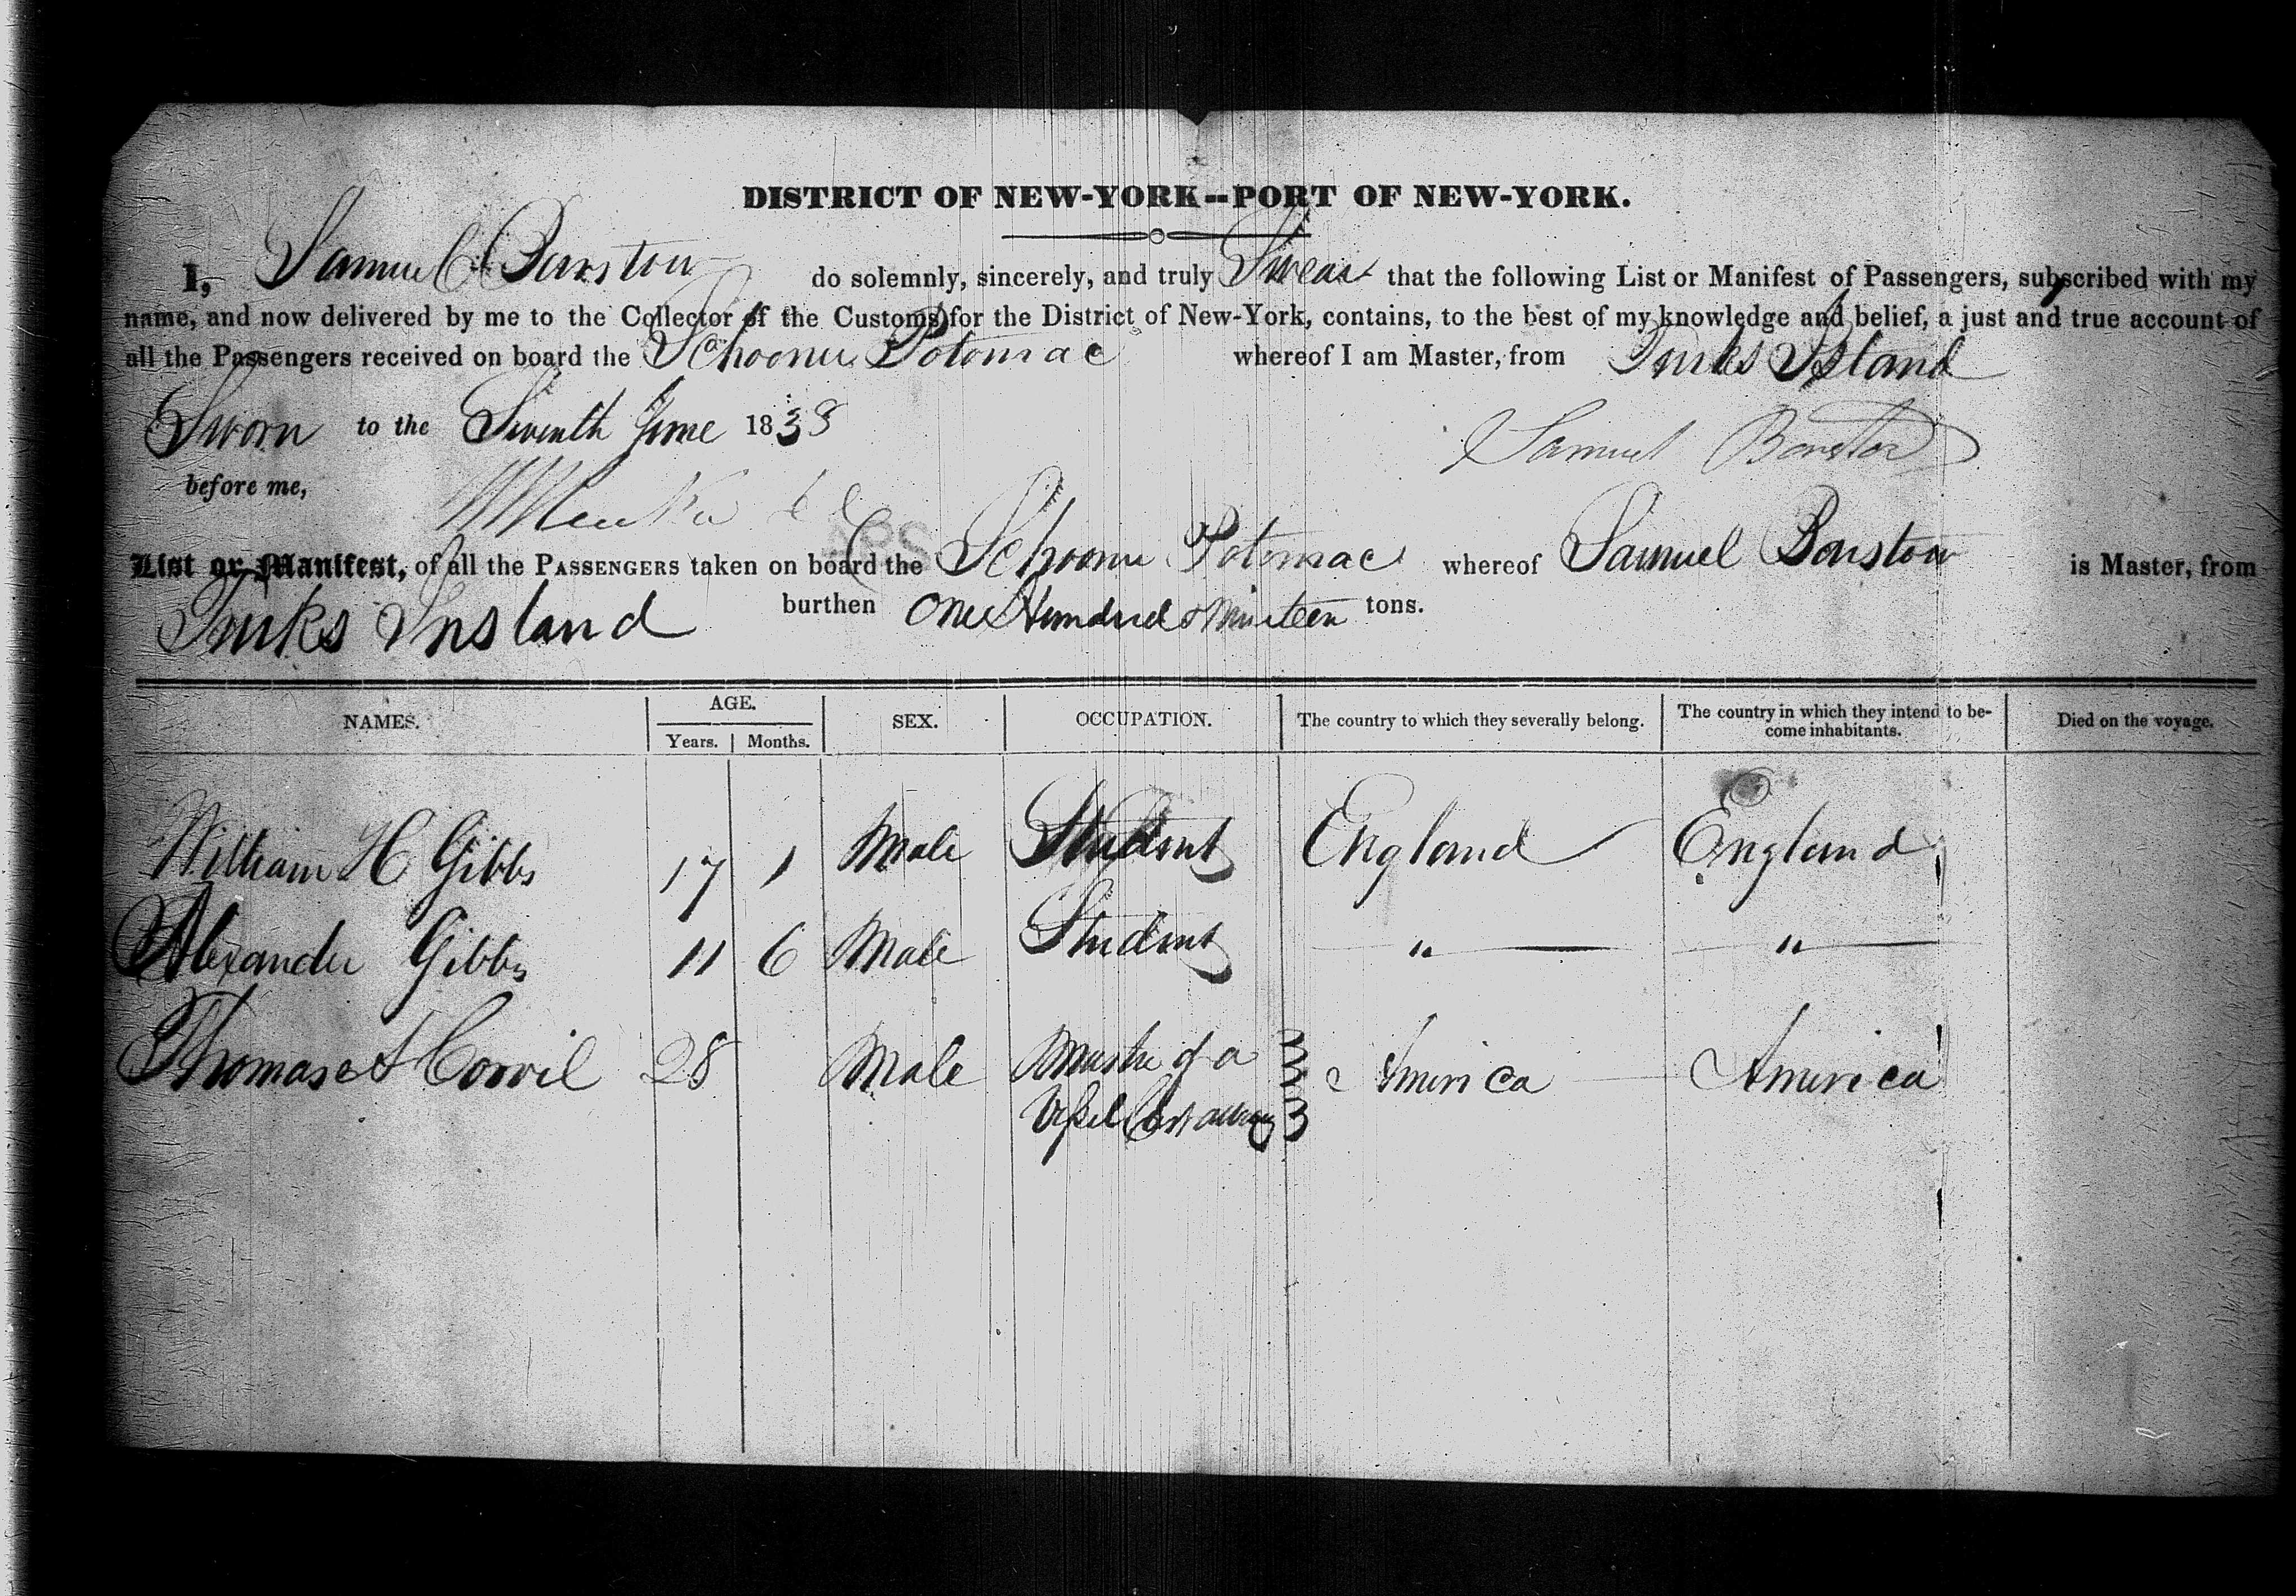 DISTRICT OF NEW-YORK--PORT OF NEW-YORK.
I, Samuel Barstow do solemnly, sincerely, and truly Swear that the following List or Manifest of Passengers, subscribed with my
name, and now delivered by me to the Collector of the Customs for the District of New-York, contains, to the best of my knowledge and belief, a just and true account of
all the Passengers received on board the Schooner Potomac whereof I am Master, from Turks Island
Sworn to the Seventh June 1838
Samuel Barstow
before me,
List or Manifest, of all the PASSENGERS taken on board the Schooner Potomac whereof Samuel Barstow is Master, from
Turks Insland burthen One Hundred & Nineteen tons.
NAMES. AGE. SEX. OCCUPATION. The country to which they severally belong. The country in which they intend to be-
come inhabitants. Died on the voyage.
Years. Months.
William H Gibbs 17 1 Male Student England England
Alexander Gibbs 11 6 Male Student " "
Thomas Corvil 28 Male Master of a America America
Vessel Cast away